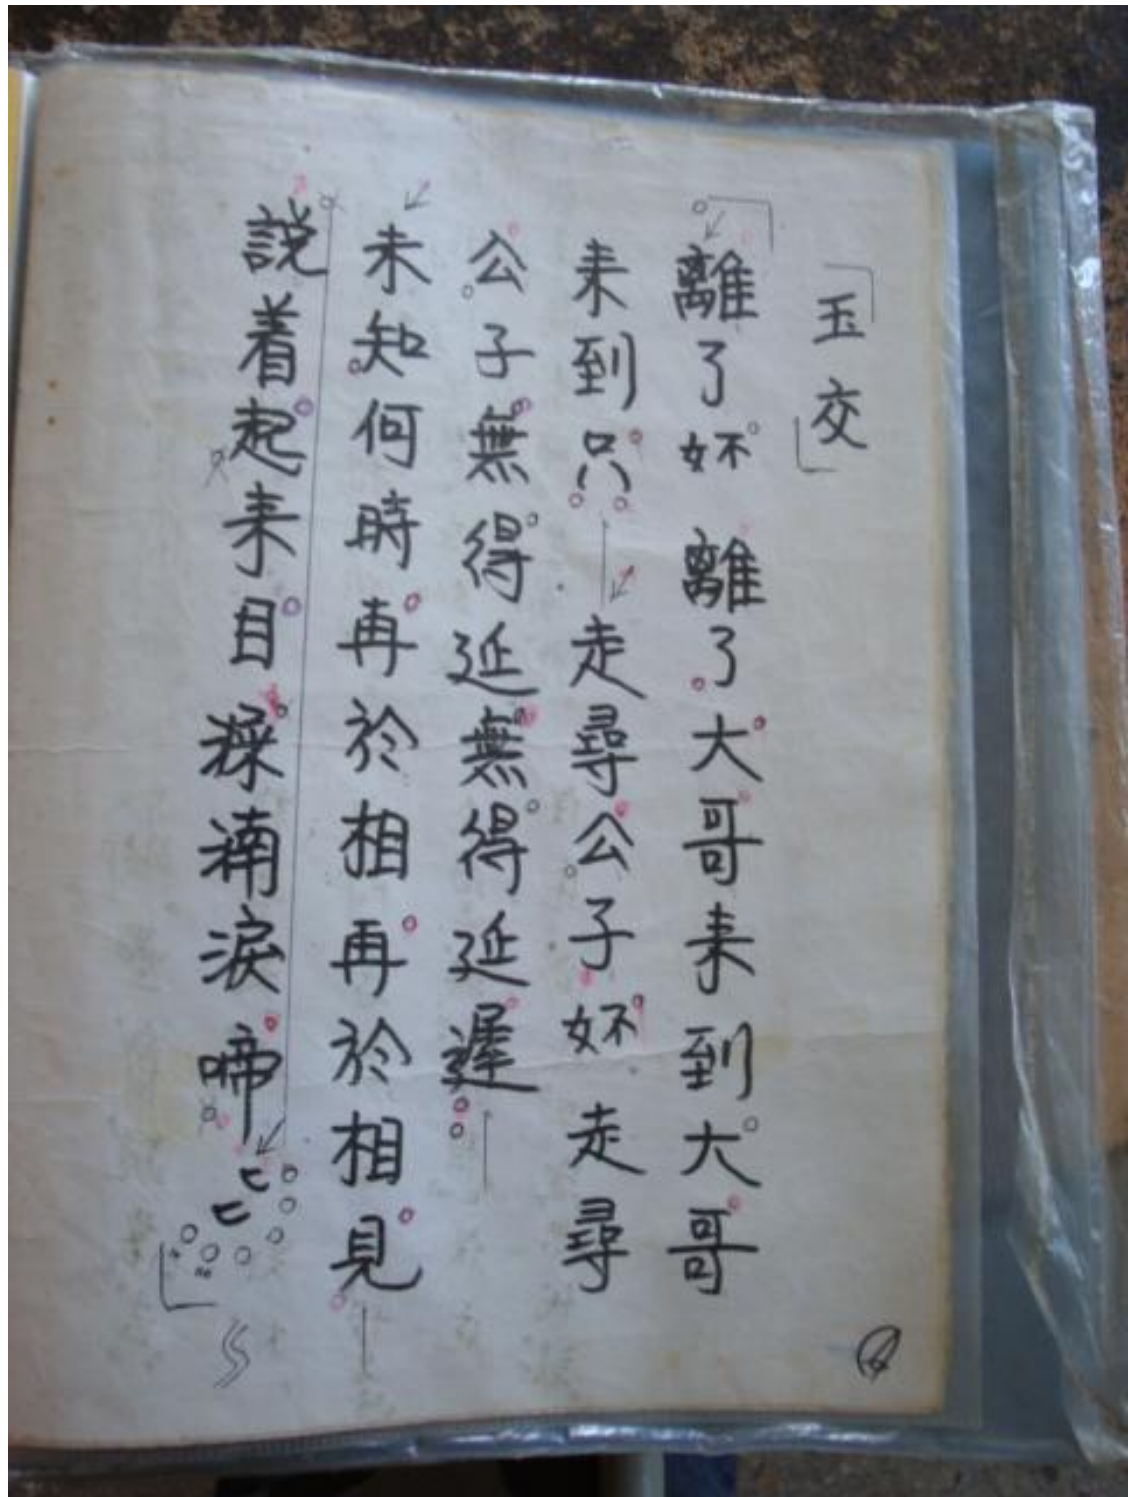 玉交
離了妚離了大哥来到大哥
来到只走尋公子妚走尋
公子無得延無得延遲
未知何時再於相再於相見
説着起来目滓湳淚啼